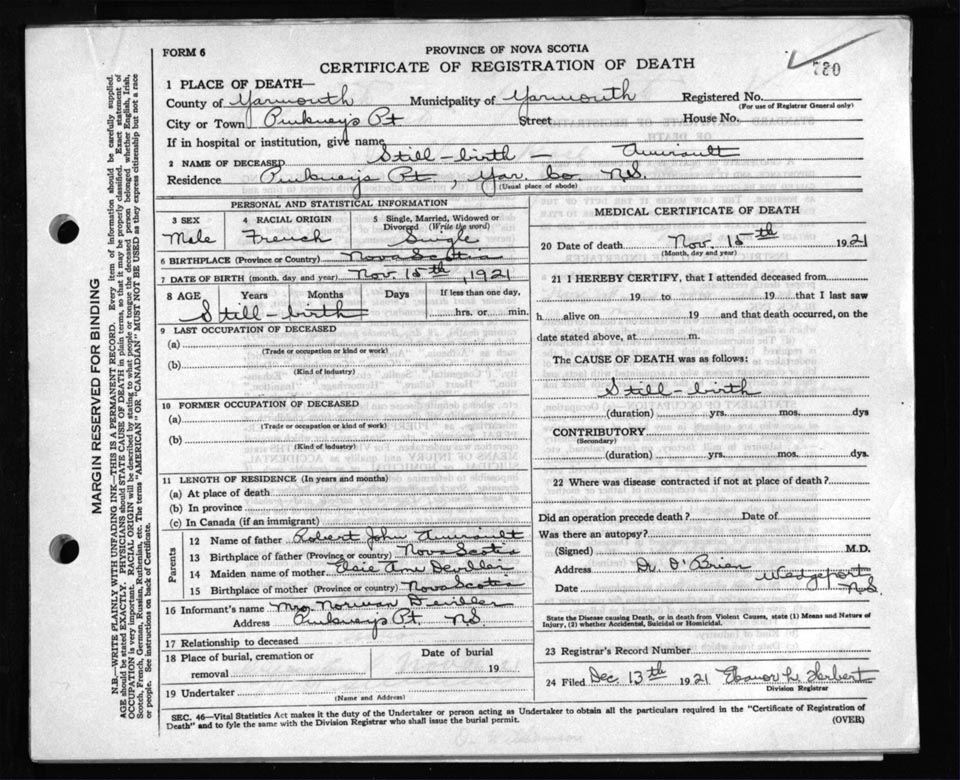 FORM 6
PROVINCE OF NOVA SCOTIA
CERTIFICATE OF REGISTRATION OF DEATH
720
1 PLACE OF DEATH—
County of Yarmouth Municipality of Yarmouth Registered No.
(For use of Registrar General only)
City or Town Pinkney's Pt Street House No.
If in hospital or institution, give name
2 NAME OF DECEASED Still-birth — Amirault
Residence Pinkney's Pt, Yar. Co. N.S.
(Usual place of abode)
PERSONAL AND STATISTICAL INFORMATION
3 SEX Male
4 RACIAL ORIGIN French
5 Single, Married, Widowed or Divorced (Write the word) Single
6 BIRTHPLACE (Province or Country) Nova Scotia
7 DATE OF BIRTH (month, day and year) Nov. 15th, 1921
8 AGE Years Months Days If less than one day,
Still-birth hrs. or min.
9 LAST OCCUPATION OF DECEASED
(a)
(Trade or occupation or kind or work)
(b)
(Kind of industry)
10 FORMER OCCUPATION OF DECEASED
(a)
(Trade or occupation or kind of work)
(b)
(Kind of industry)
11 LENGTH OF RESIDENCE (In years and months)
(a) At place of death
(b) In province
(c) In Canada (if an immigrant)
Parents
12 Name of father Robert John Amirault
13 Birthplace of father (Province or country) Nova Scotia
14 Maiden name of mother Elsie Ann
15 Birthplace of mother (Province or country) Nova Scotia
16 Informant's name Mrs. Norman
Address Pinkney's Pt. N.S.
17 Relationship to deceased
18 Place of burial, cremation or removal
Date of burial
19
19 Undertaker
(Name and Address)
MEDICAL CERTIFICATE OF DEATH
20 Date of death Nov. 15th 1921
(Month, day and year)
21 I HEREBY CERTIFY, that I attended deceased from
19 to 19 that I last saw
h alive on 19 and that death occurred, on the
date stated above, at m.
The CAUSE OF DEATH was as follows:
Still-birth
(duration) yrs. mos. dys
CONTRIBUTORY
(Secondary)
(duration) yrs. mos. dys.
22 Where was disease contracted if not at place of death?
Did an operation precede death? Date of
Was there an autopsy?
(Signed) M.D.
Address Dr. O'Brian Wedgeport
Date N.S.
State the Disease causing Death, or in death from Violent Causes, state (1) Means and Nature of
Injury, (2) whether Accidental, Suicidal or Homicidal.
23 Registrar's Record Number
24 Filed Dec. 13th 1921 Eleanor L. Herbert
Division Registrar
SEC. 46—Vital Statistics Act makes it the duty of the Undertaker or person acting as Undertaker to obtain all the particulars required in the "Certificate of Registration of
Death" and to fyle the same with the Division Registrar who shall issue the burial permit.
(OVER)
MARGIN RESERVED FOR BINDING
N.B.—WRITE PLAINLY WITH UNFADING INK—THIS IS A PERMANENT RECORD. Every item of information should be carefully supplied.
AGE should be stated EXACTLY. PHYSICIANS should STATE CAUSE OF DEATH in plain terms, so that it may be properly classified. Exact statement of
OCCUPATION is very important. RACIAL ORIGIN will be described by stating to what people or tongue the deceased person belonged whether English, Irish,
Scotch, French, German, Russian, Ruthenian, etc. The terms "AMERICAN" OR "CANADIAN" MUST NOT BE USED as they express citizenship but not a race
or people. See instructions on back of Certificate.